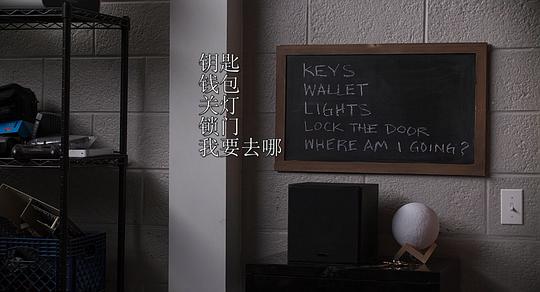 钥匙
钱包
关灯
锁门
我要去哪
KEYS
WALLET
LIGHTS
LOCK THE DOOR
WHERE AM I GOING?